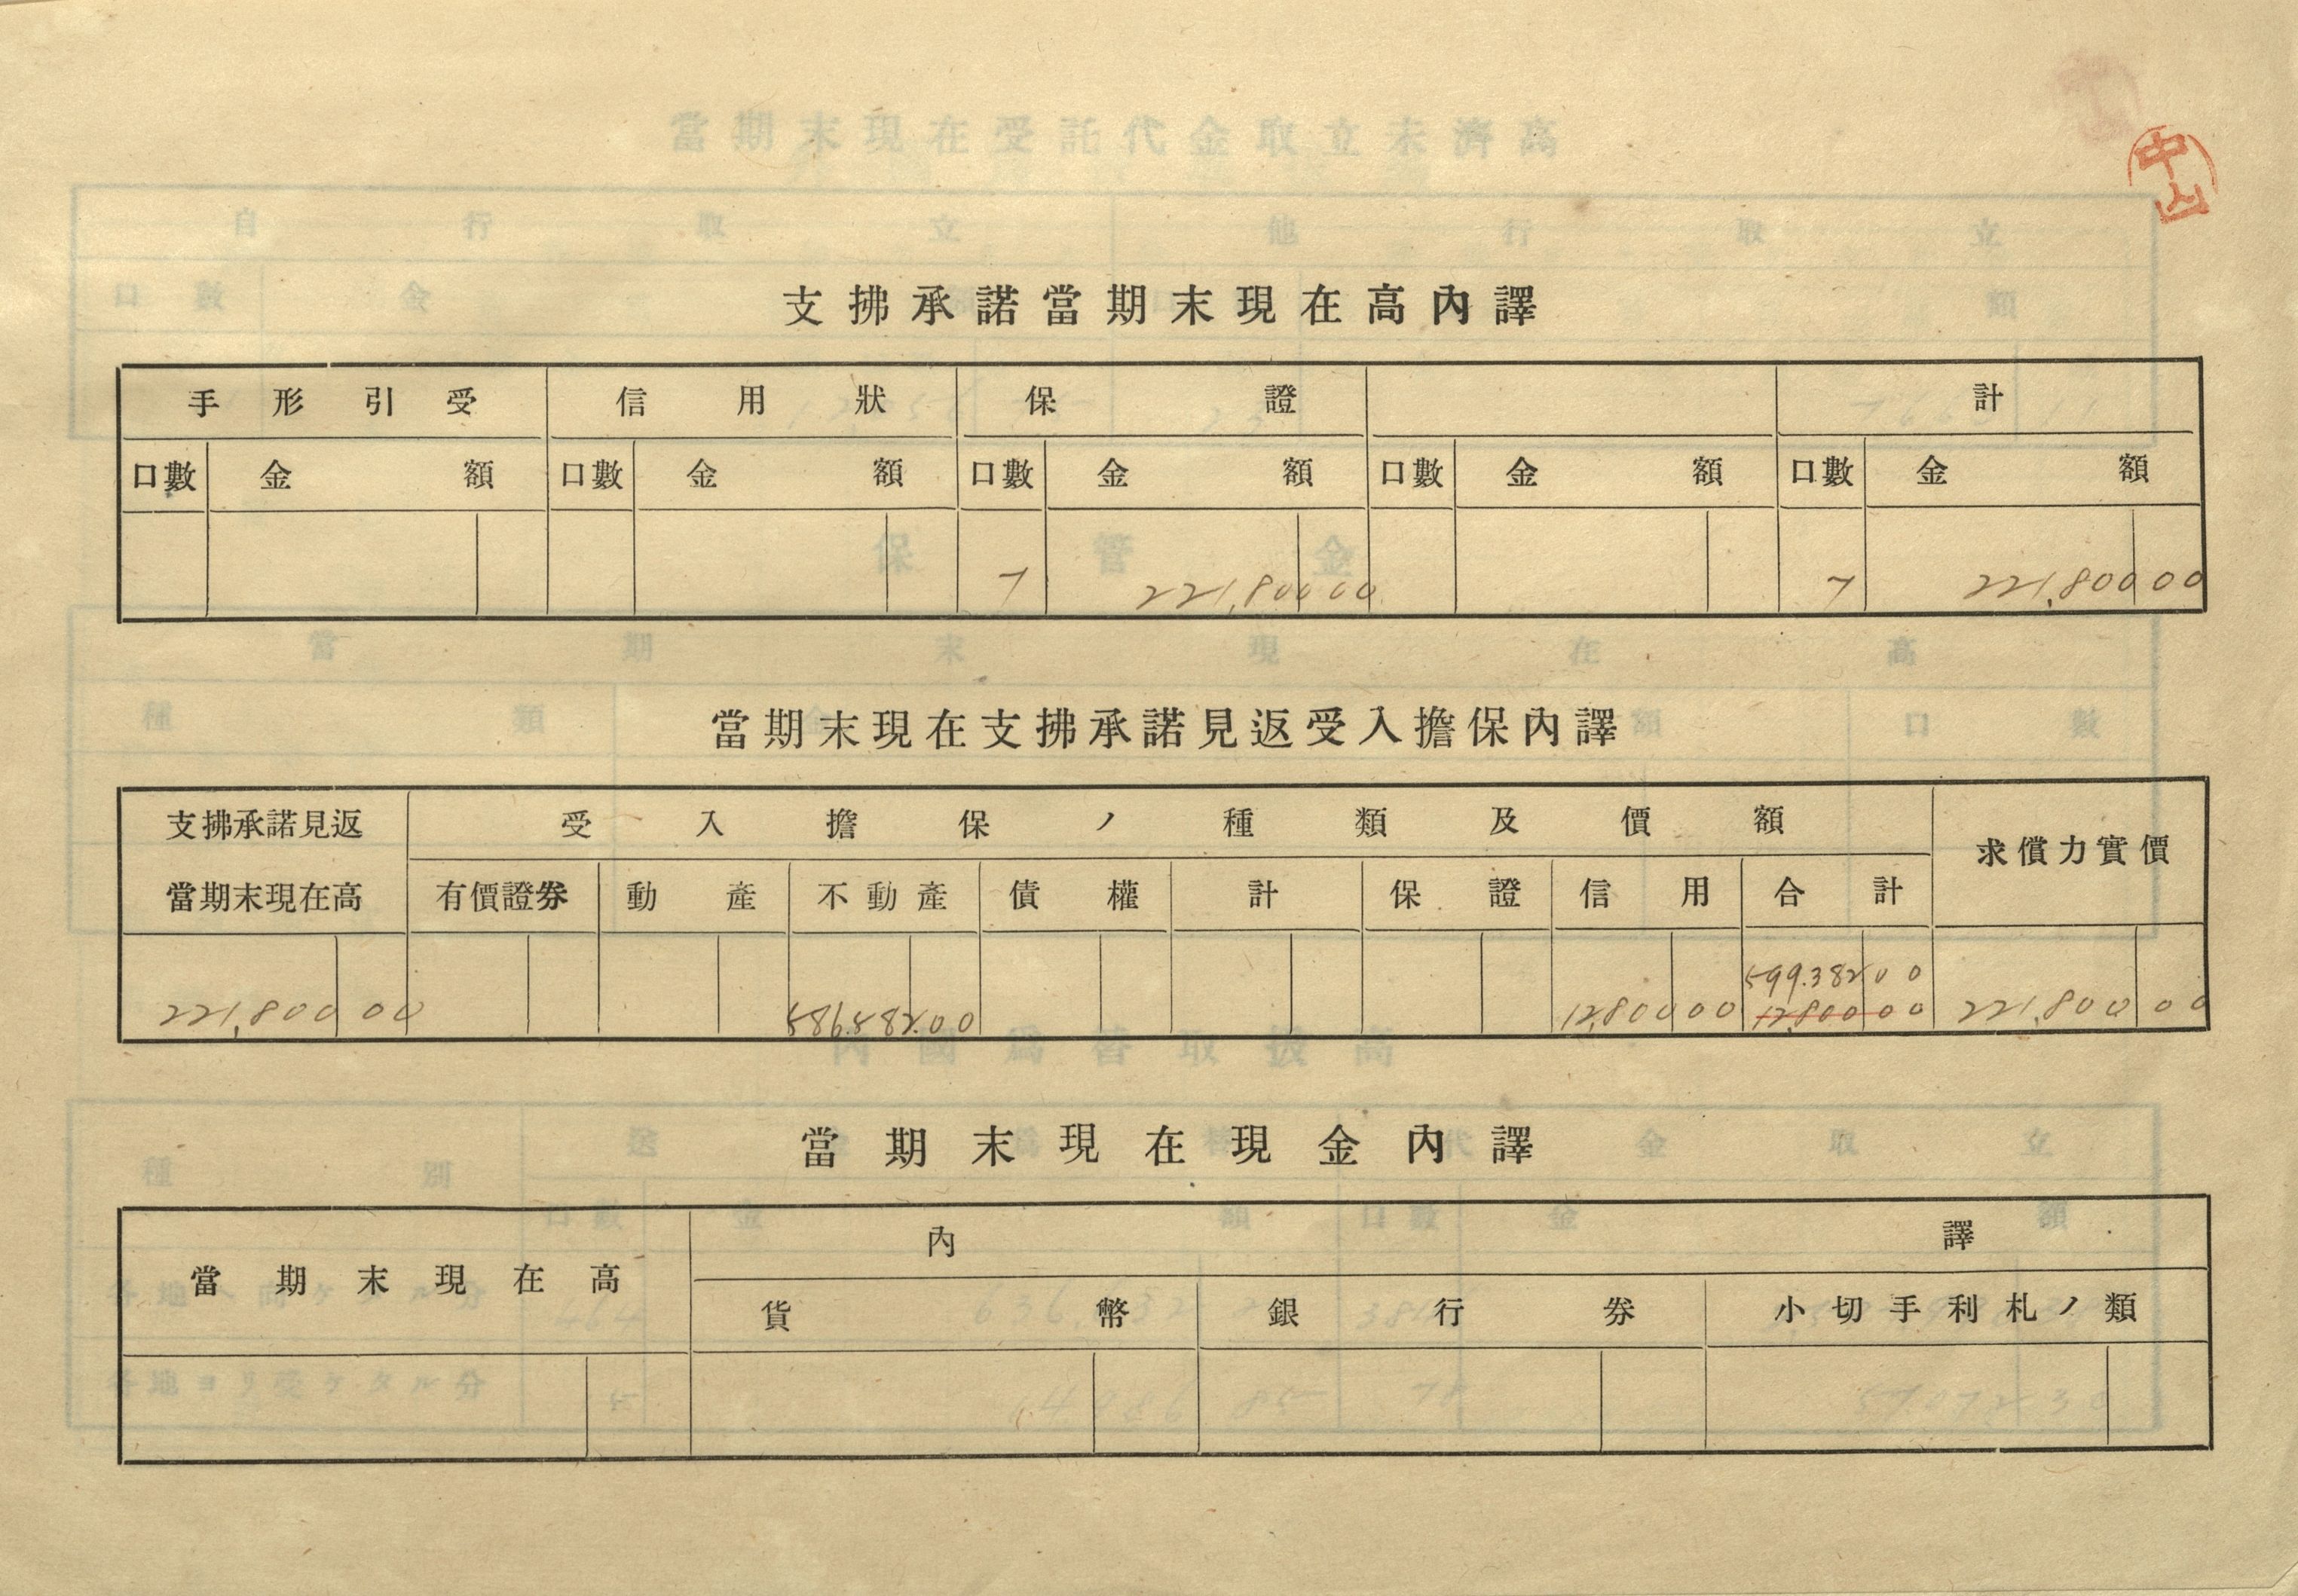 中山
支拂承諾當期末現在高內譯
手形引受 信用狀 保證 計
口數 金額 口數 金額 口數 金額 口數 金額 口數 金額
7 221,800 00 7 221,800 00
當期末現在支拂承諾見返受入擔保內譯
支拂承諾見返 受入擔保ノ種類及價額 求償力實價
當期末現在高 有價證券 動產 不動產 債權 計 保證 信用 合計
599.382 00
221,800 00 586.582.00 12,800 00 12,800 00 221,800 00
當期末現在現金內譯
當期末現在高 內譯
貨幣 銀行券 小切手利札ノ類